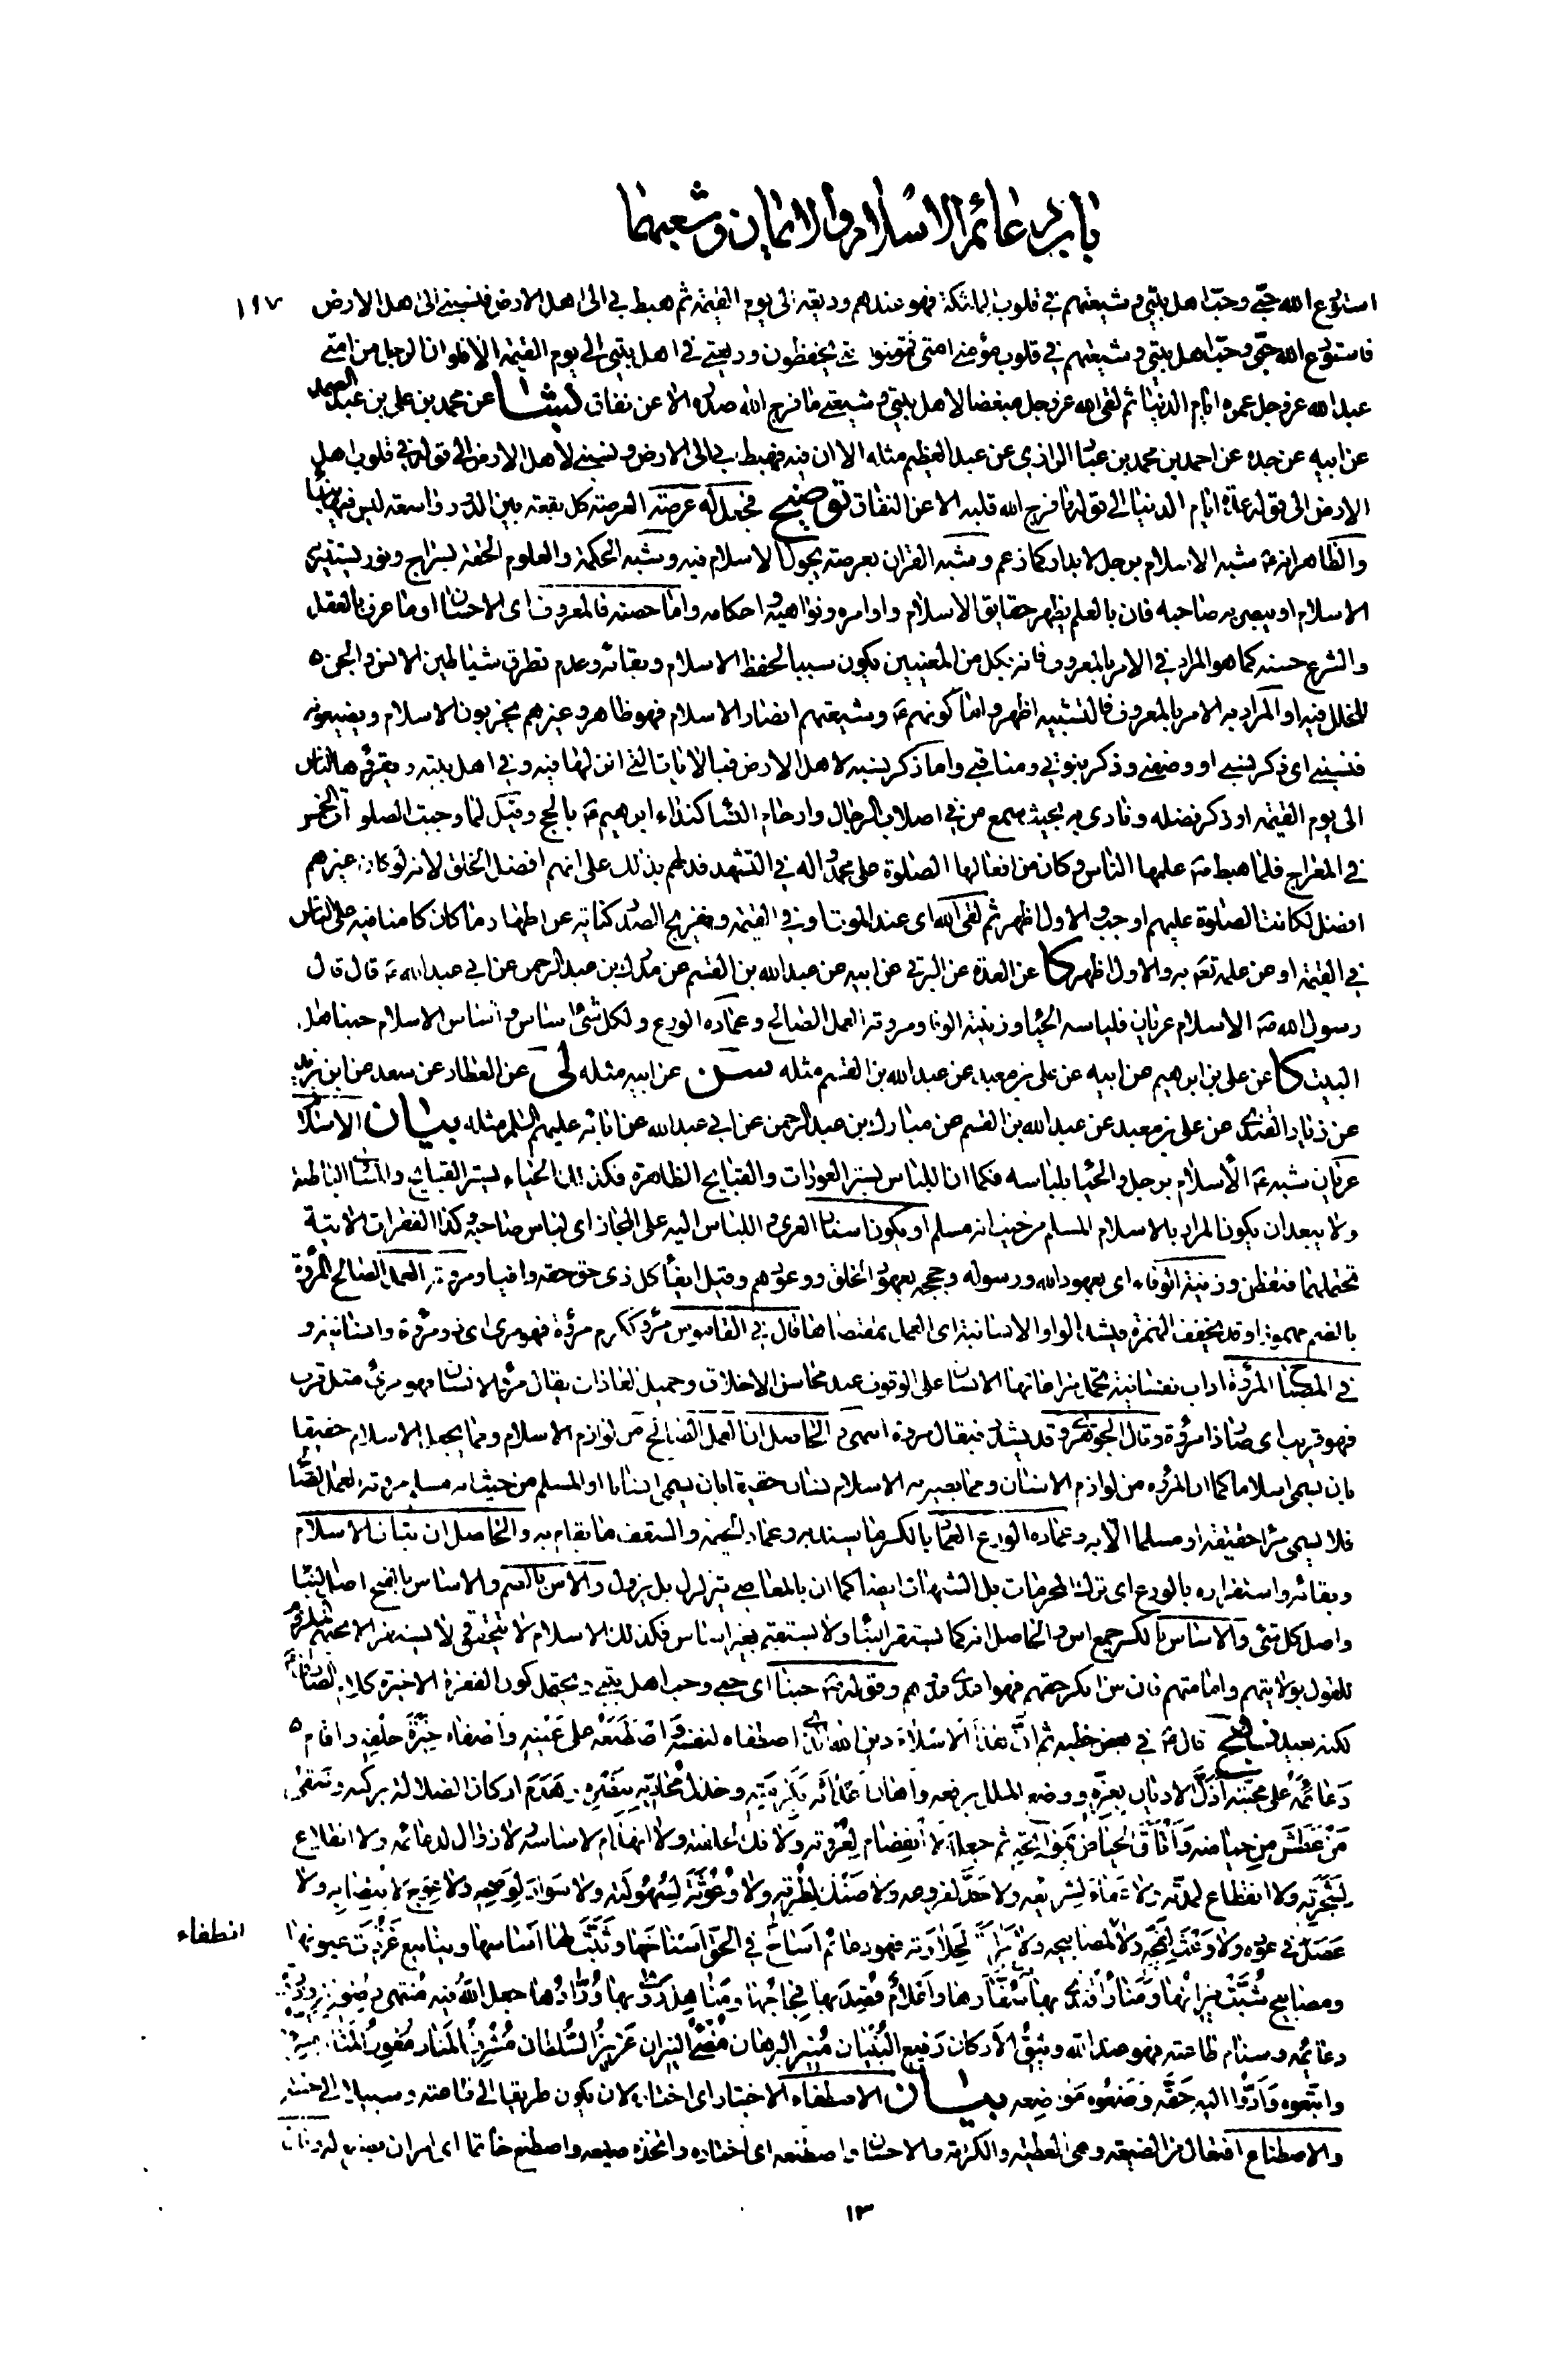 باب دعائم الاسلام والايمان وشعبهما
١٩٧
استودع الله حبّى وحبّ اهل بيتى وشيعتهم فى قلوب الملئكة فهو عندهم وديعة الى يوم القيمة ثم هبط بى الى اهل الارض فنسبنى الى اهل الارض
فاستودع الله حبّى وحبّ اهل بيتى وشيعتهم فى قلوب مؤمنى امتى فمؤمنوا امتى يحفظون وديعتى فى اهل بيتى الى يوم القيمة الا فلو ان الرجل من امتى
عبد الله عز وجل عمره ايام الدنيا ثم لقى الله عز وجل مبغضا لاهل بيتى وشيعتى ما فرج الله صدره الا عن نفاق بشا عن محمد بن على بن عبد الصمد
عن ابيه عن جده عن احمد بن محمد بن عباد الرازى عن عبد العظيم مثله الا ان فيه فهبط بى الى الارض ونسبنى لاهل الارض الى قوله فى قلوب اهل
الارض الى قوله عدة ايام الدنيا الى قوله ما فرج الله قلبه الا عن النفاق توضيح فجعل له عرصة العرصة كل بقعة بين الدور واسعة ليس فيها بناء
والظاهر انه شبه الاسلام برجل لا بدار كما زعم وشبه القران بعرصة يجول الاسلام فيه وشبه الحكمة والعلوم الحقة بسراج ونور يستنير به
الاسلام او يبصر به صاحبه فان بالعلم يظهر حقايق الاسلام واوامره ونواهيه واحكامه واما حصنه فالمعروف اى الاحسان او ما عرف بالعقل
والشرع حسنه كما هو المراد فى الامر بالمعروف فانه بكل من المعنيين يكون سببا لحفظ الاسلام وبقائه وعدم تطرق شياطين الانس والجن
للخلل فيه او المراد به الامر بالمعروف فالتشبيه اظهر واما كونهم ع وشيعتهم انصار الاسلام فهو ظاهر وغيرهم يخربون الاسلام ويضيعونه
فنسبنى اى ذكر نسبى او وصفنى وذكر نبوتى ومناقبى واما ذكر نسبه لاهل الارض فبالايات التى انزلها فيه وفى اهل بيته ويقرؤها الناس
الى يوم القيمة او ذكر فضله ونادى به بحيث سمع من فى اصلاب الرجال وارحام النساء كنداء ابرهيم ع بالحج وقيل لما وجبت الصلوات الخمس
فى المعراج فلما هبط ص علمها الناس وكان من افعالها الصلوة على محمد واله فى التشهد فدلهم بذلك على انهم افضل الخلق لانه لو كان غيرهم
افضل لكانت الصلوة عليهم اوجب والاول اظهر ثم لقى الله اى عند الموت او فى القيمة وتفريج الصدر كناية عن اظهار ما كان كامنا فيه على الناس
فى القيمة او عن علمه تعالى به والاول اظهر كا عن العدة عن البرقى عن ابيه عن عبد الله بن القسم عن مدرك بن عبد الرحمن عن ابى عبد الله ع قال قال
رسول الله ص الاسلام عريان فلباسه الحياء وزينته الوفاء ومروته العمل الصالح وعماده الورع ولكل شئ اساس واساس الاسلام حبنا اهل
البيت كا عن على بن ابرهيم عن ابيه عن على بن معبد عن عبد الله بن القسم مثله سن عن ابيه مثله لى عن العطار عن سعد عن ابن يزيد
عن زياد القندى عن على بن معبد عن عبد الله بن القسم عن مبارك بن عبد الرحمن عن ابى عبد الله عن ابائه عليهم السلم مثله بيان الاسلام
عريان شبه ع الاسلام برجل والحياء بلباسه فكما ان اللباس يستر العورات والقبايح الظاهرة فكذلك الحياء يستر القبايح والمساوى الباطنة
ولا يبعد ان يكون المراد بالاسلام المسلم من حيث انه مسلم او يكون اسناد العرى واللباس اليه على المجاز اى لباس صاحبه وكذا الفقرات الاتية
تحتملهما فتفطن وزينته الوفاء اى بعهود الله ورسوله وحججه بعهود الخلق ووعودهم وقيل ايفاء كل ذى حق حقه وافيا ومروته العمل الصالح المروة
بالضم مهموزا وقد يخفف الهمزة فيشدد الواو الانسانية اى العمل بمقتضاها قال فى القاموس مرؤ ككرم مروءة فهو مرئ اى ذو مروءة وانسانية و
فى المصباح المروءة اداب نفسانية تحمل مراعاتها الانسان على الوقوف عند محاسن الاخلاق وجميل العادات يقال مرؤ الانسان فهو مرئ مثل قرب
فهو قريب اى صار ذا مروءة وقال الجوهرى وقد يشدد فيقال مروة انتهى والحاصل ان العمل الصالح من لوازم الاسلام ومما يجعل الاسلام حقيقا
بان يسمى اسلاما كما ان المروة من لوازم الانسان ومما يصير به الانسان حقيقا بان يسمى انسانا او المسلم من حيث انه مسلم مروته العمل الصالح
فلا يسمى مرأ حقيقة او مسلما الا به وعماده الورع العماد بالكسر ما يسند به وعماد الخيمة والسقف ما يقام به والحاصل ان ثبات الاسلام
وبقائه واستقراره بالورع اى ترك المحرمات بل الشبهات ايضا كما ان بالمعاصى يتزلزل بل يزول والاس بالضم والاساس بالفتح اصل البناء
واصل كل شئ والاساس بالكسر جمع اس والحاصل انه كما يستقر البناء ولا يستقيم بغير اساس فكذلك الاسلام لا يتحقق ولا يستقر الا بحبهم الملزوم
للقول بولايتهم وامامتهم فان من انكر حقهم فهو اعدى عدوهم وقوله ص حبنا اى حبى وحب اهل بيتى ويحتمل كون الفقرة الاخيرة كلام الصادق ع
لكنه بعيد نهج قال ع فى بعض خطبه ثم ان هذا الاسلام دين الله الذى اصطفاه لنفسه واصطنعه على عينه واصفاه خيرة خلقه واقام
دعائمه على محبته اذل الاديان بعزه ووضع الملل برفعه واهان اعدائه بكرامته وخذل محاديه بنصره وهدم اركان الضلالة بركنه وسقى
من عطش من حياضه واتاق الحياض بمواتحه ثم جعله لا انفصام لعروته ولا فك لحلقته ولا انهدام لاساسه ولا زوال لدعائمه ولا انقلاع
لشجرته ولا انقطاع لمدته ولا عفاء لشرايعه ولا جذ لفروعه ولا ضنك لطرقه ولا وعوثة لسهولته ولا سواد لوضحه ولا عوج لانتصابه ولا
عصل فى عوده ولا وعث لفجه ولا لمصابيحه ولا مرارة لحلاوته فهو دعائم اساخ فى الحق اسناخها وثبت لها اساسها وينابيع غزرت عيونها
انطفاء
ومصابيح شبت نيرانها ومنار اقتدى بها سفارها واعلام قصد بها فجاجها ومناهل روى بها ورادها جعل الله فيه منتهى رضوانه وذروة
دعائمه وسنام طاعته فهو عند الله وثيق الاركان رفيع البنيان منير البرهان مضئ النيران عزيز السلطان مشرف المنار معوز المثار فشرفوه
واتبعوه وادوا اليه حقه وضعوه مواضعه بيان الاصطفاء الاختيار اى اختاره لان يكون طريقا الى طاعته وسبيلا الى جنته
والاصطناع افتعال من الصنيعة وهى العطية والكرامة والاحسان واصطنعه اى اختاره واتخذه صنيعة واصطنع خاتما اى امر ان يصنع له
١٣